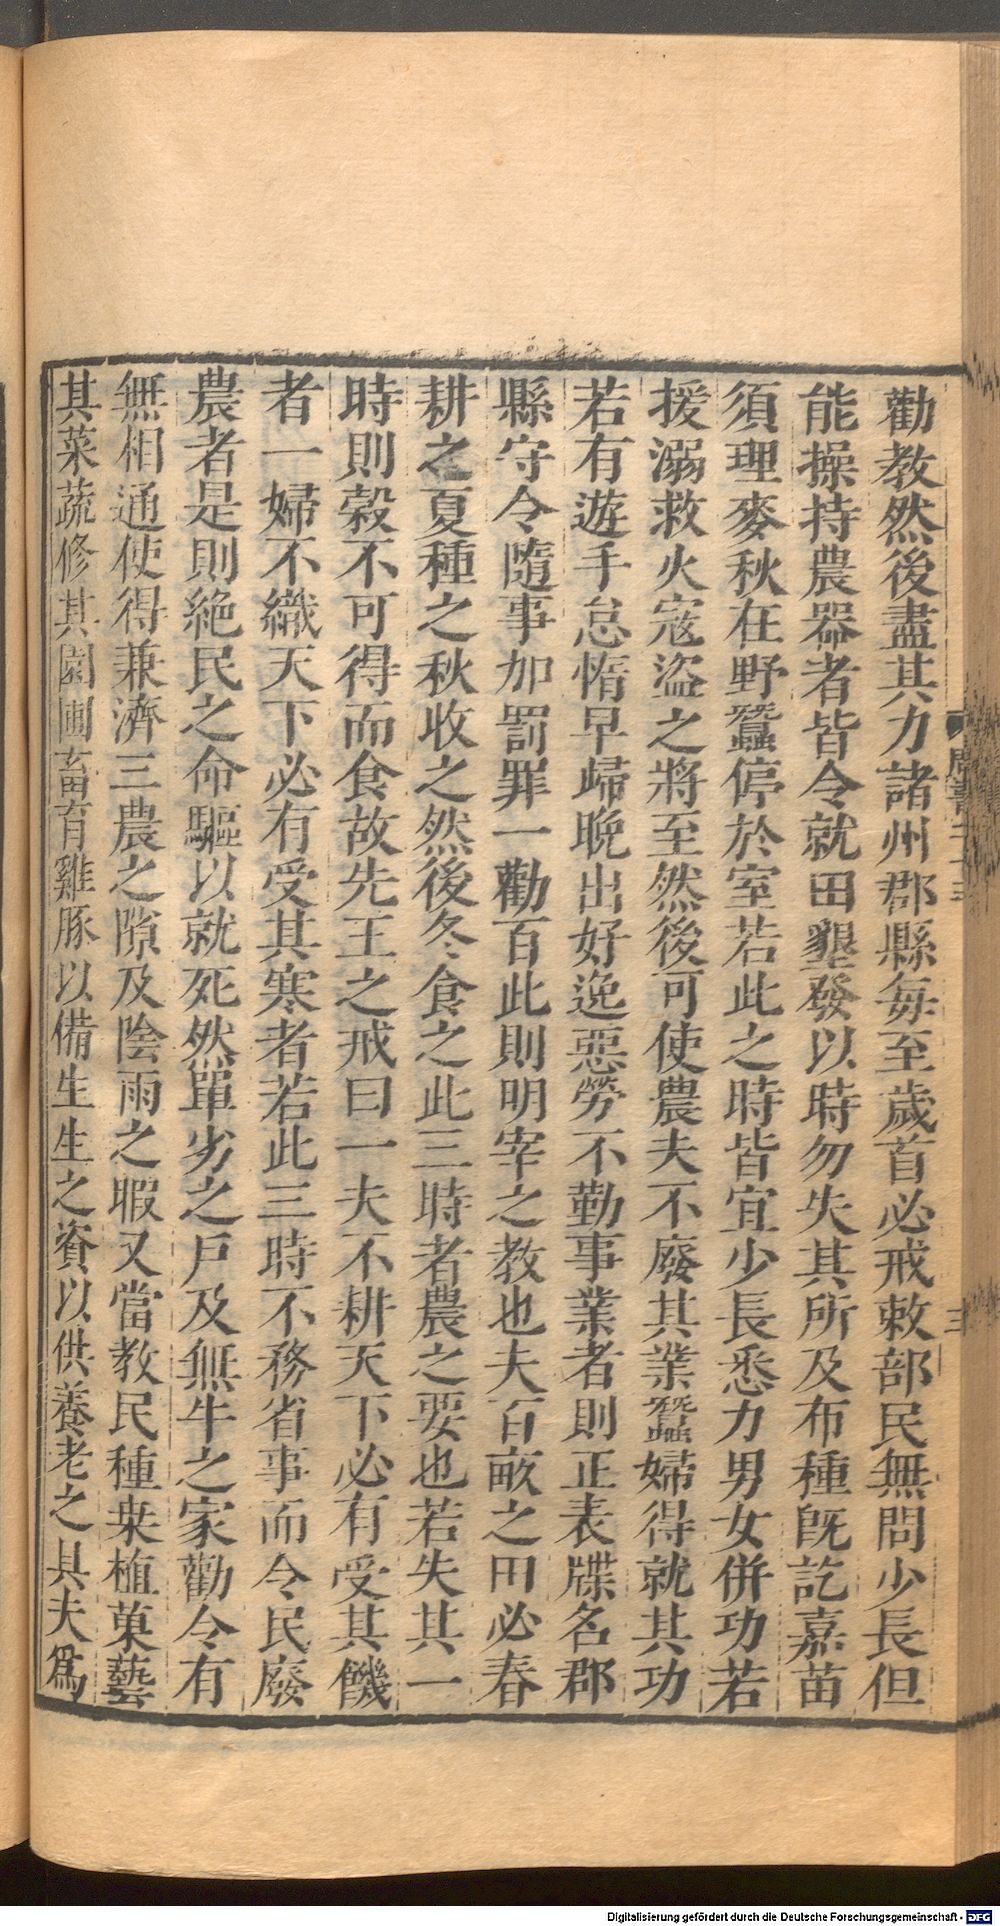 勸教然後盡其力諸州郡縣每至歲首必戒敕部民無問少長但
能操持農器者皆令就田墾發以時勿失其所及布種旣訖嘉苗
須理麥秋在野蠶停於室若此之時皆宜少長悉力男女併功若
援溺救火寇盜之將至然後可使農夫不廢其業蠶婦得就其功
若有遊手怠惰早歸晚出好逸惡勞不勤事業者則正表牒名郡
縣守令隨事加罰罪一勸百此則明宰之教也夫百畝之田必春
耕之夏種之秋收之然後冬食之此三時者農之要也若失其一
時則穀不可得而食故先王之戒曰一夫不耕天下必有受其饑
者一婦不織天下必有受其寒者若此三時不務省事而令民廢
農者是則絕民之命驅以就死然單劣之戶及無牛之家勸令有
無相通使得兼濟三農之隙及陰雨之暇又當教民種桒植菓藝
其菜蔬修其園圃畜育雞豚以備生生之資以供養老之具夫爲
周書二十三
三
Digitalisierung gefördert durch die Deutsche Forschungsgemeinschaft - DFG